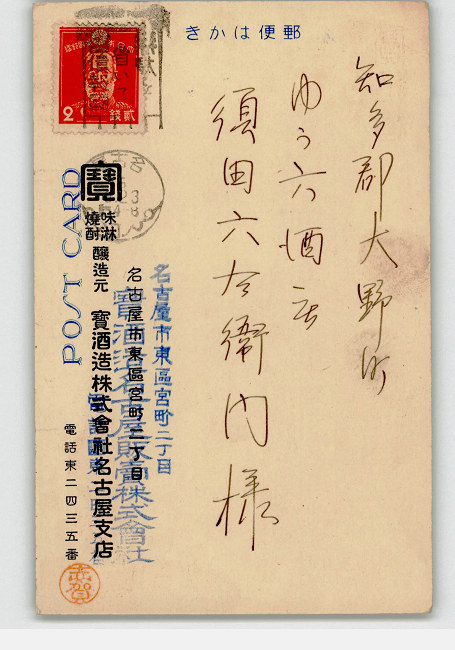 郵便はかき
知多郡大野町
ゆう六酒店
須田六左衛門様
貳錢
2
POST CARD
寶
味淋
燒酎
醸造元
寶酒造株式會社名古屋支店
名古屋市東區宮町二丁目
電話東二四三五番
名古屋市東區宮町二丁目
寶酒造名古屋販賣株式會社
志賀